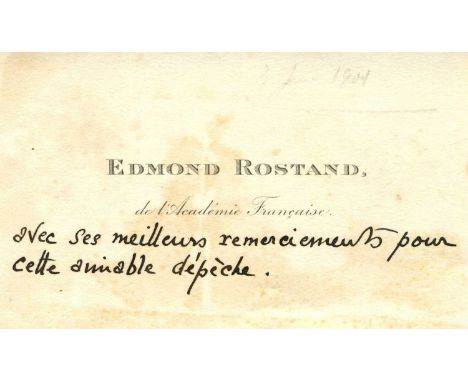 1904
EDMOND ROSTAND,
de l'Académie Française.
avec ses meilleurs remerciements pour
cette aimable dépèche.